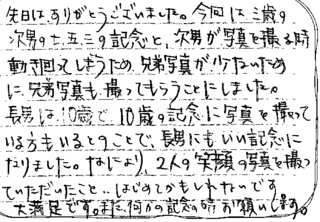 先日はありがとうございました。今回は三歳の
次男の七五三の記念と、次男が写真を撮る時
動き回ってしまうため、兄弟写真が少ないため
に、兄弟写真も撮ってもらうことにしました。
長男は10歳で、10歳の記念に写真を撮って
いる方もいるとのことで、長男にもいい記念に
なりました。なにより、2人の笑顔の写真を撮っ
ていただいたこと‥はじめてかもしれないです
大満足です。また、何かの記念の時お願いします。